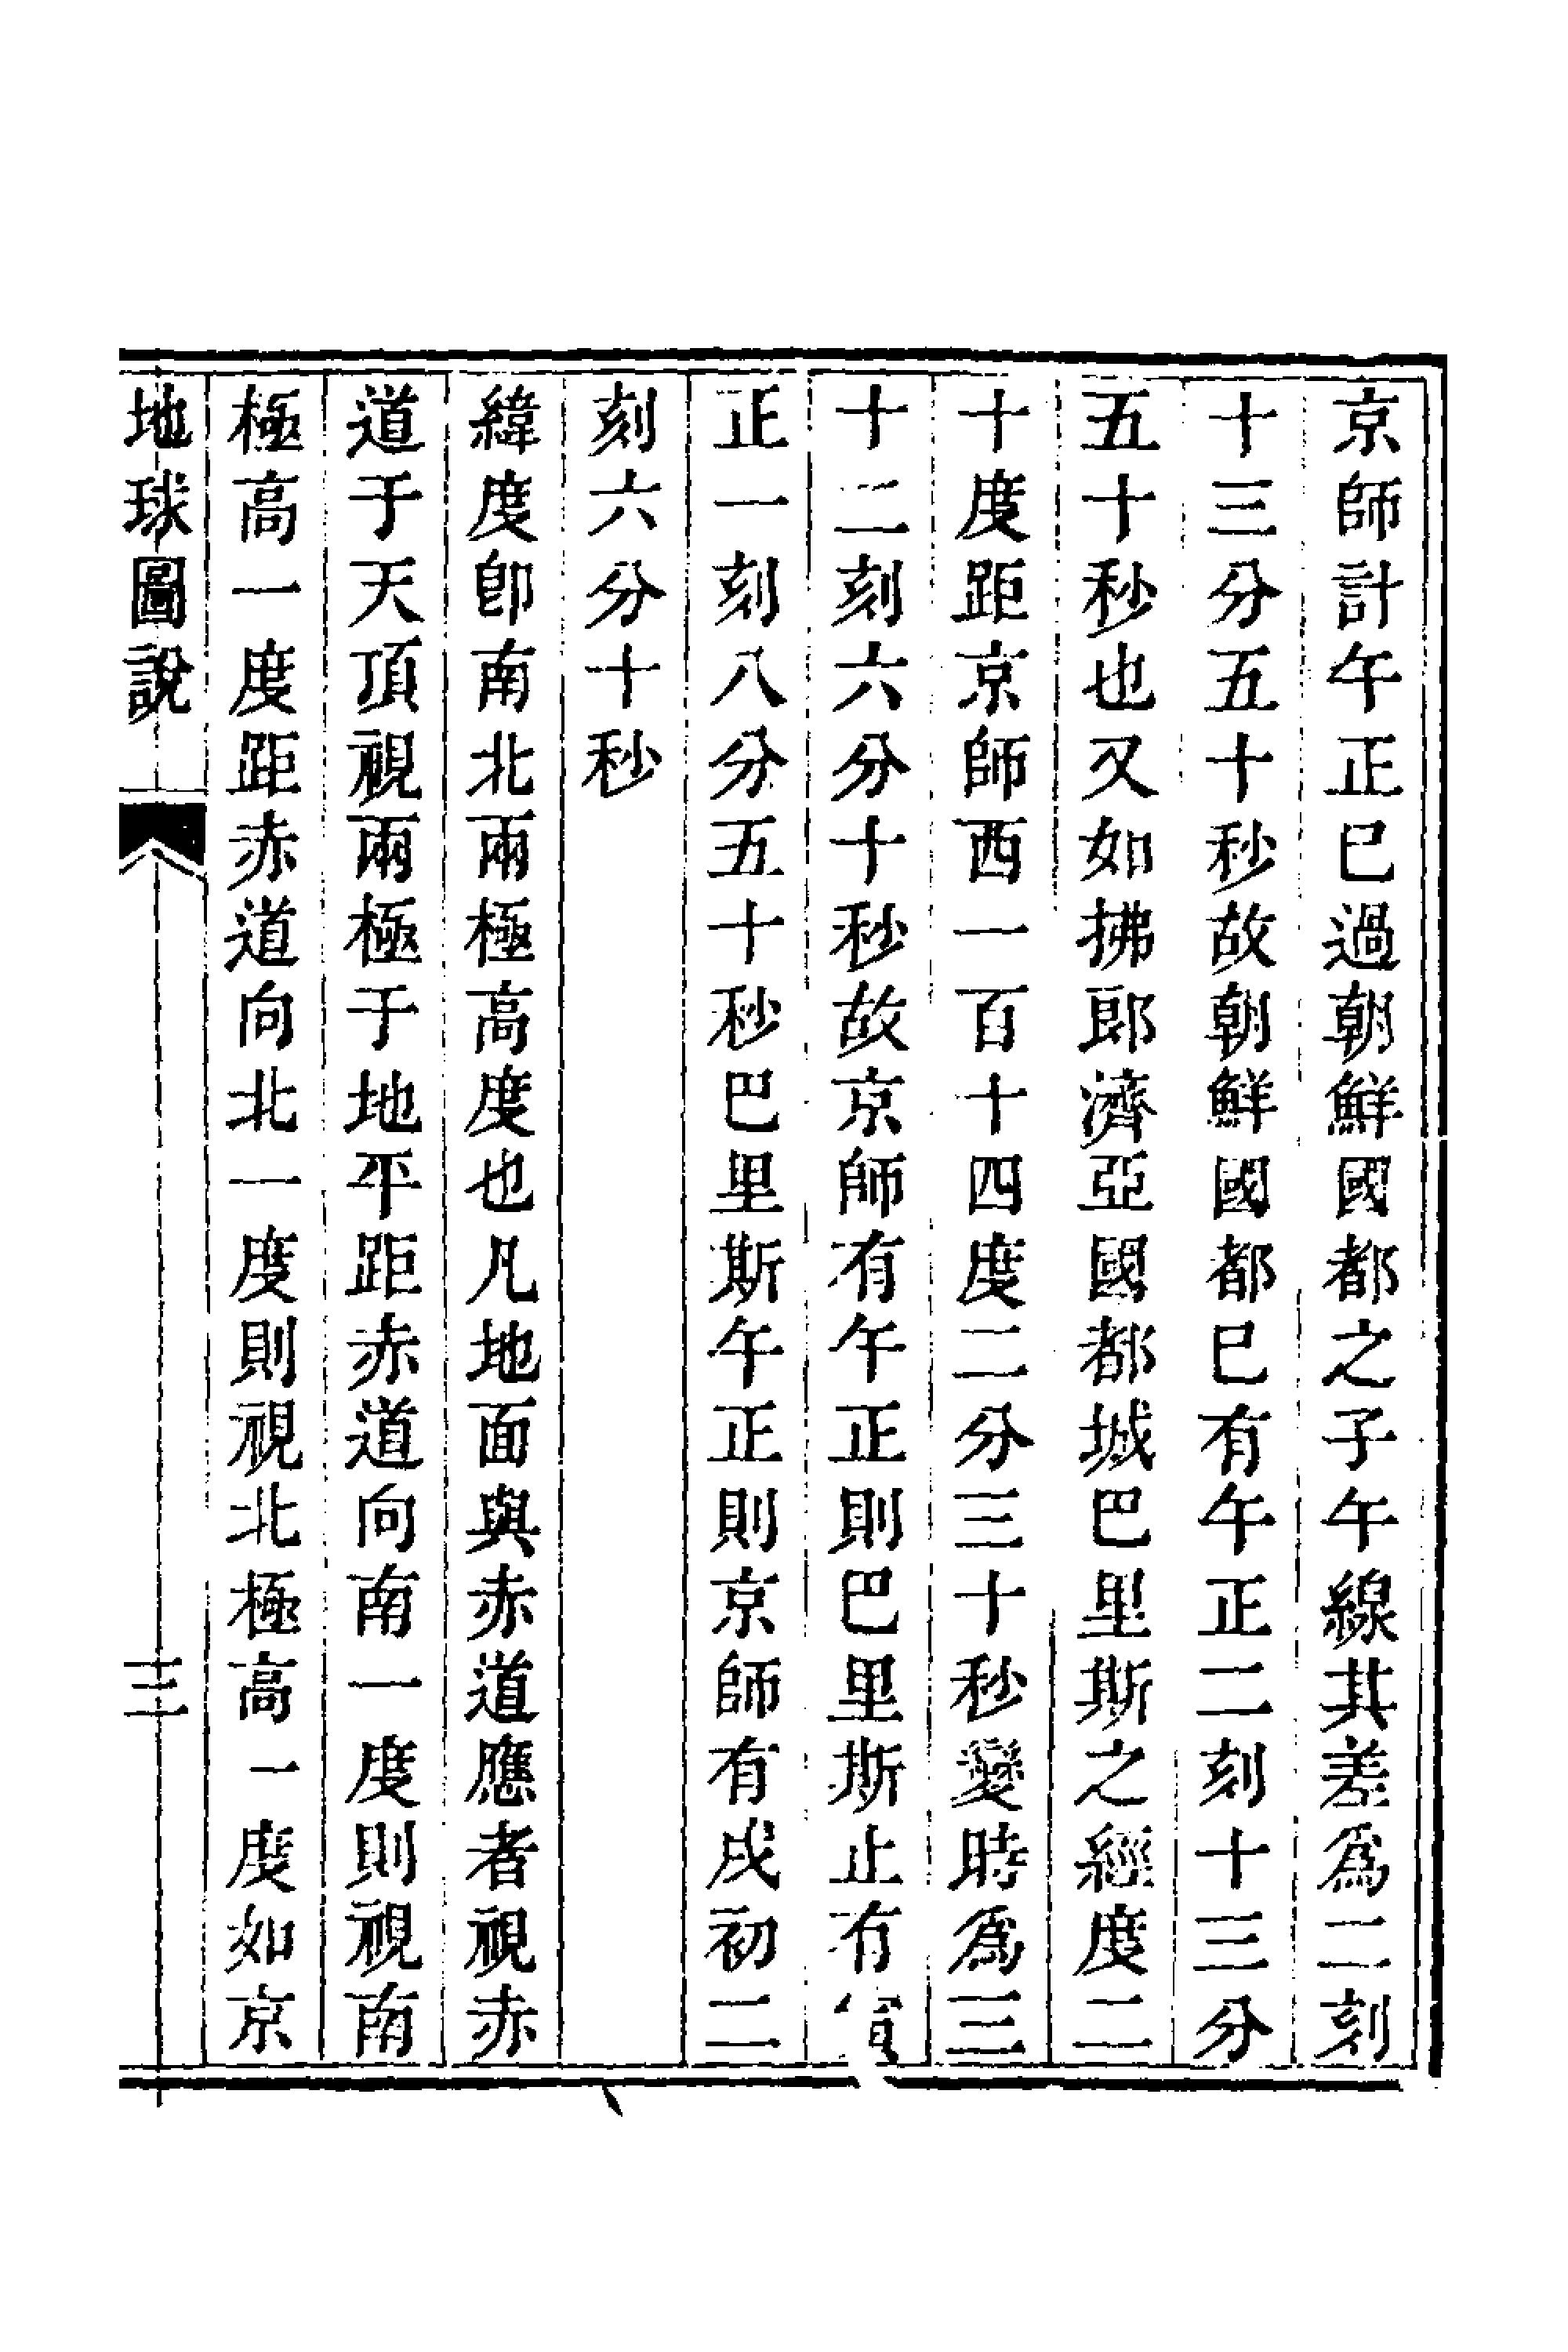 京師計午正巳過朝鮮國都之子午線其差爲二刻
十三分五十秒故朝鮮國都巳有午正二刻十三分
五十秒也又如拂郎濟亞國都城巴里斯之經度二
十度距京師西一百十四度二分三十秒變時爲三
十二刻六分十秒故京師有午正則巴里斯止有寅
正一刻八分五十秒巴里斯午正則京師有戌初二
刻六分十秒
緯度卽南北兩極高度也凡地面與赤道應者視赤
道于天頂視兩極于地平距赤道向南一度則視南
極高一度距赤道向北一度則視北極高一度如京
地球圖說
三